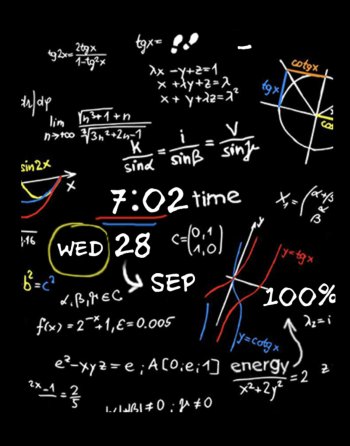 tg2x = 2tgx / 1-tg²x
tgx=
λx - y + z = 1
x + λy + z = λ
x + y + λz = λ²
cotgx
tgx
lim n→+∞
K / sinα = i / sinβ = V / sinγ
sin2x
x
7:02 time
WED 28
SEP
C = (0,1
1,0)
y=tgx
y
b²=c²
α,β,γ∈C
100%
λ₂=i
f(x) = 2⁻ˣ+1, ε=0.005
y=cotgx
e² - xyz = e ; A[0,e,1]
energy / x²+2y² = 2
z
2x-1 = 2/5
≠0 ; γ≠0